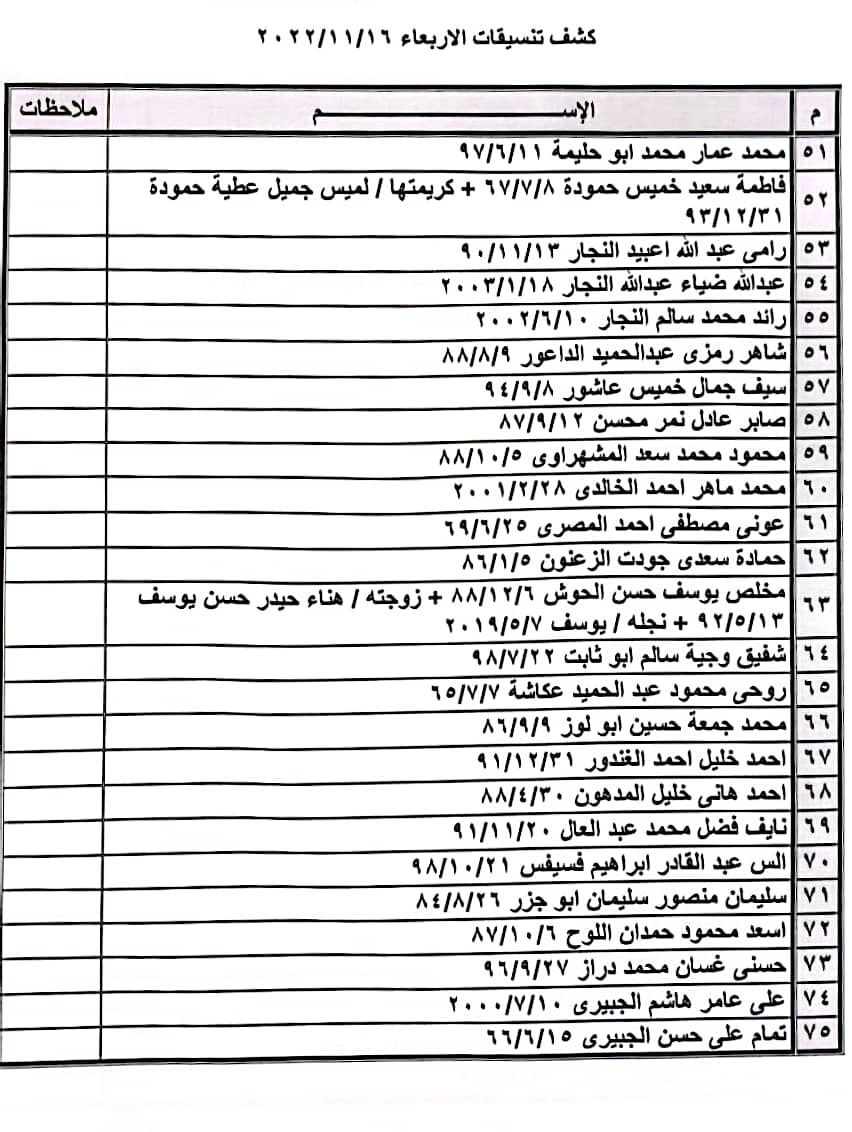 كشف تنسيقات الاربعاء ٢٠٢٢/١١/١٦
م الإســـــــــم ملاحظات
٥١ محمد عمار محمد ابو حليمة ٩٧/٦/١١
٥٢ فاطمة سعيد خميس حمودة ٦٧/٧/٨ + كريمتها / لميس جميل عطية حمودة
٩٣/١٢/٣١
٥٣ رامى عبد الله اعبيد النجار ٩٠/١١/١٣
٥٤ عبدالله ضياء عبدالله النجار ٢٠٠٣/١/١٨
٥٥ رائد محمد سالم النجار ٢٠٠٢/٦/١٠
٥٦ شاهر رمزى عبدالحميد الداعور ٨٨/٨/٩
٥٧ سيف جمال خميس عاشور ٩٤/٩/٨
٥٨ صابر عادل نمر محسن ٨٧/٩/١٢
٥٩ محمود محمد سعد المشهراوى ٨٨/١٠/٥
٦٠ محمد ماهر احمد الخالدى ٢٠٠١/٢/٢٨
٦١ عونى مصطفى احمد المصرى ٦٩/٦/٢٥
٦٢ حمادة سعدى جودت الزعنون ٨٦/١/٥
٦٣ مخلص يوسف حسن الحوش ٨٨/١٢/٦ + زوجته / هناء حيدر حسن يوسف
٩٢/٥/١٣ + نجله / يوسف ٢٠١٩/٥/٧
٦٤ شفيق وجية سالم ابو ثابت ٩٨/٧/٢٢
٦٥ روحى محمود عبد الحميد عكاشة ٦٥/٧/٧
٦٦ محمد جمعة حسين ابو لوز ٨٦/٩/٩
٦٧ احمد خليل احمد الغندور ٩١/١٢/٣١
٦٨ احمد هانى خليل المدهون ٨٨/٤/٣٠
٦٩ نايف فضل محمد عبد العال ٩١/١١/٢٠
٧٠ الس عبد القادر ابراهيم فسيفس ٩٨/١٠/٢١
٧١ سليمان منصور سليمان ابو جزر ٨٤/٨/٢٦
٧٢ اسعد محمود حمدان اللوح ٨٧/١٠/٦
٧٣ حسنى غسان محمد دراز ٩٦/٩/٢٧
٧٤ على عامر هاشم الجبيرى ٢٠٠٠/٧/١٠
٧٥ تمام على حسن الجبيرى ٦٦/٦/١٥